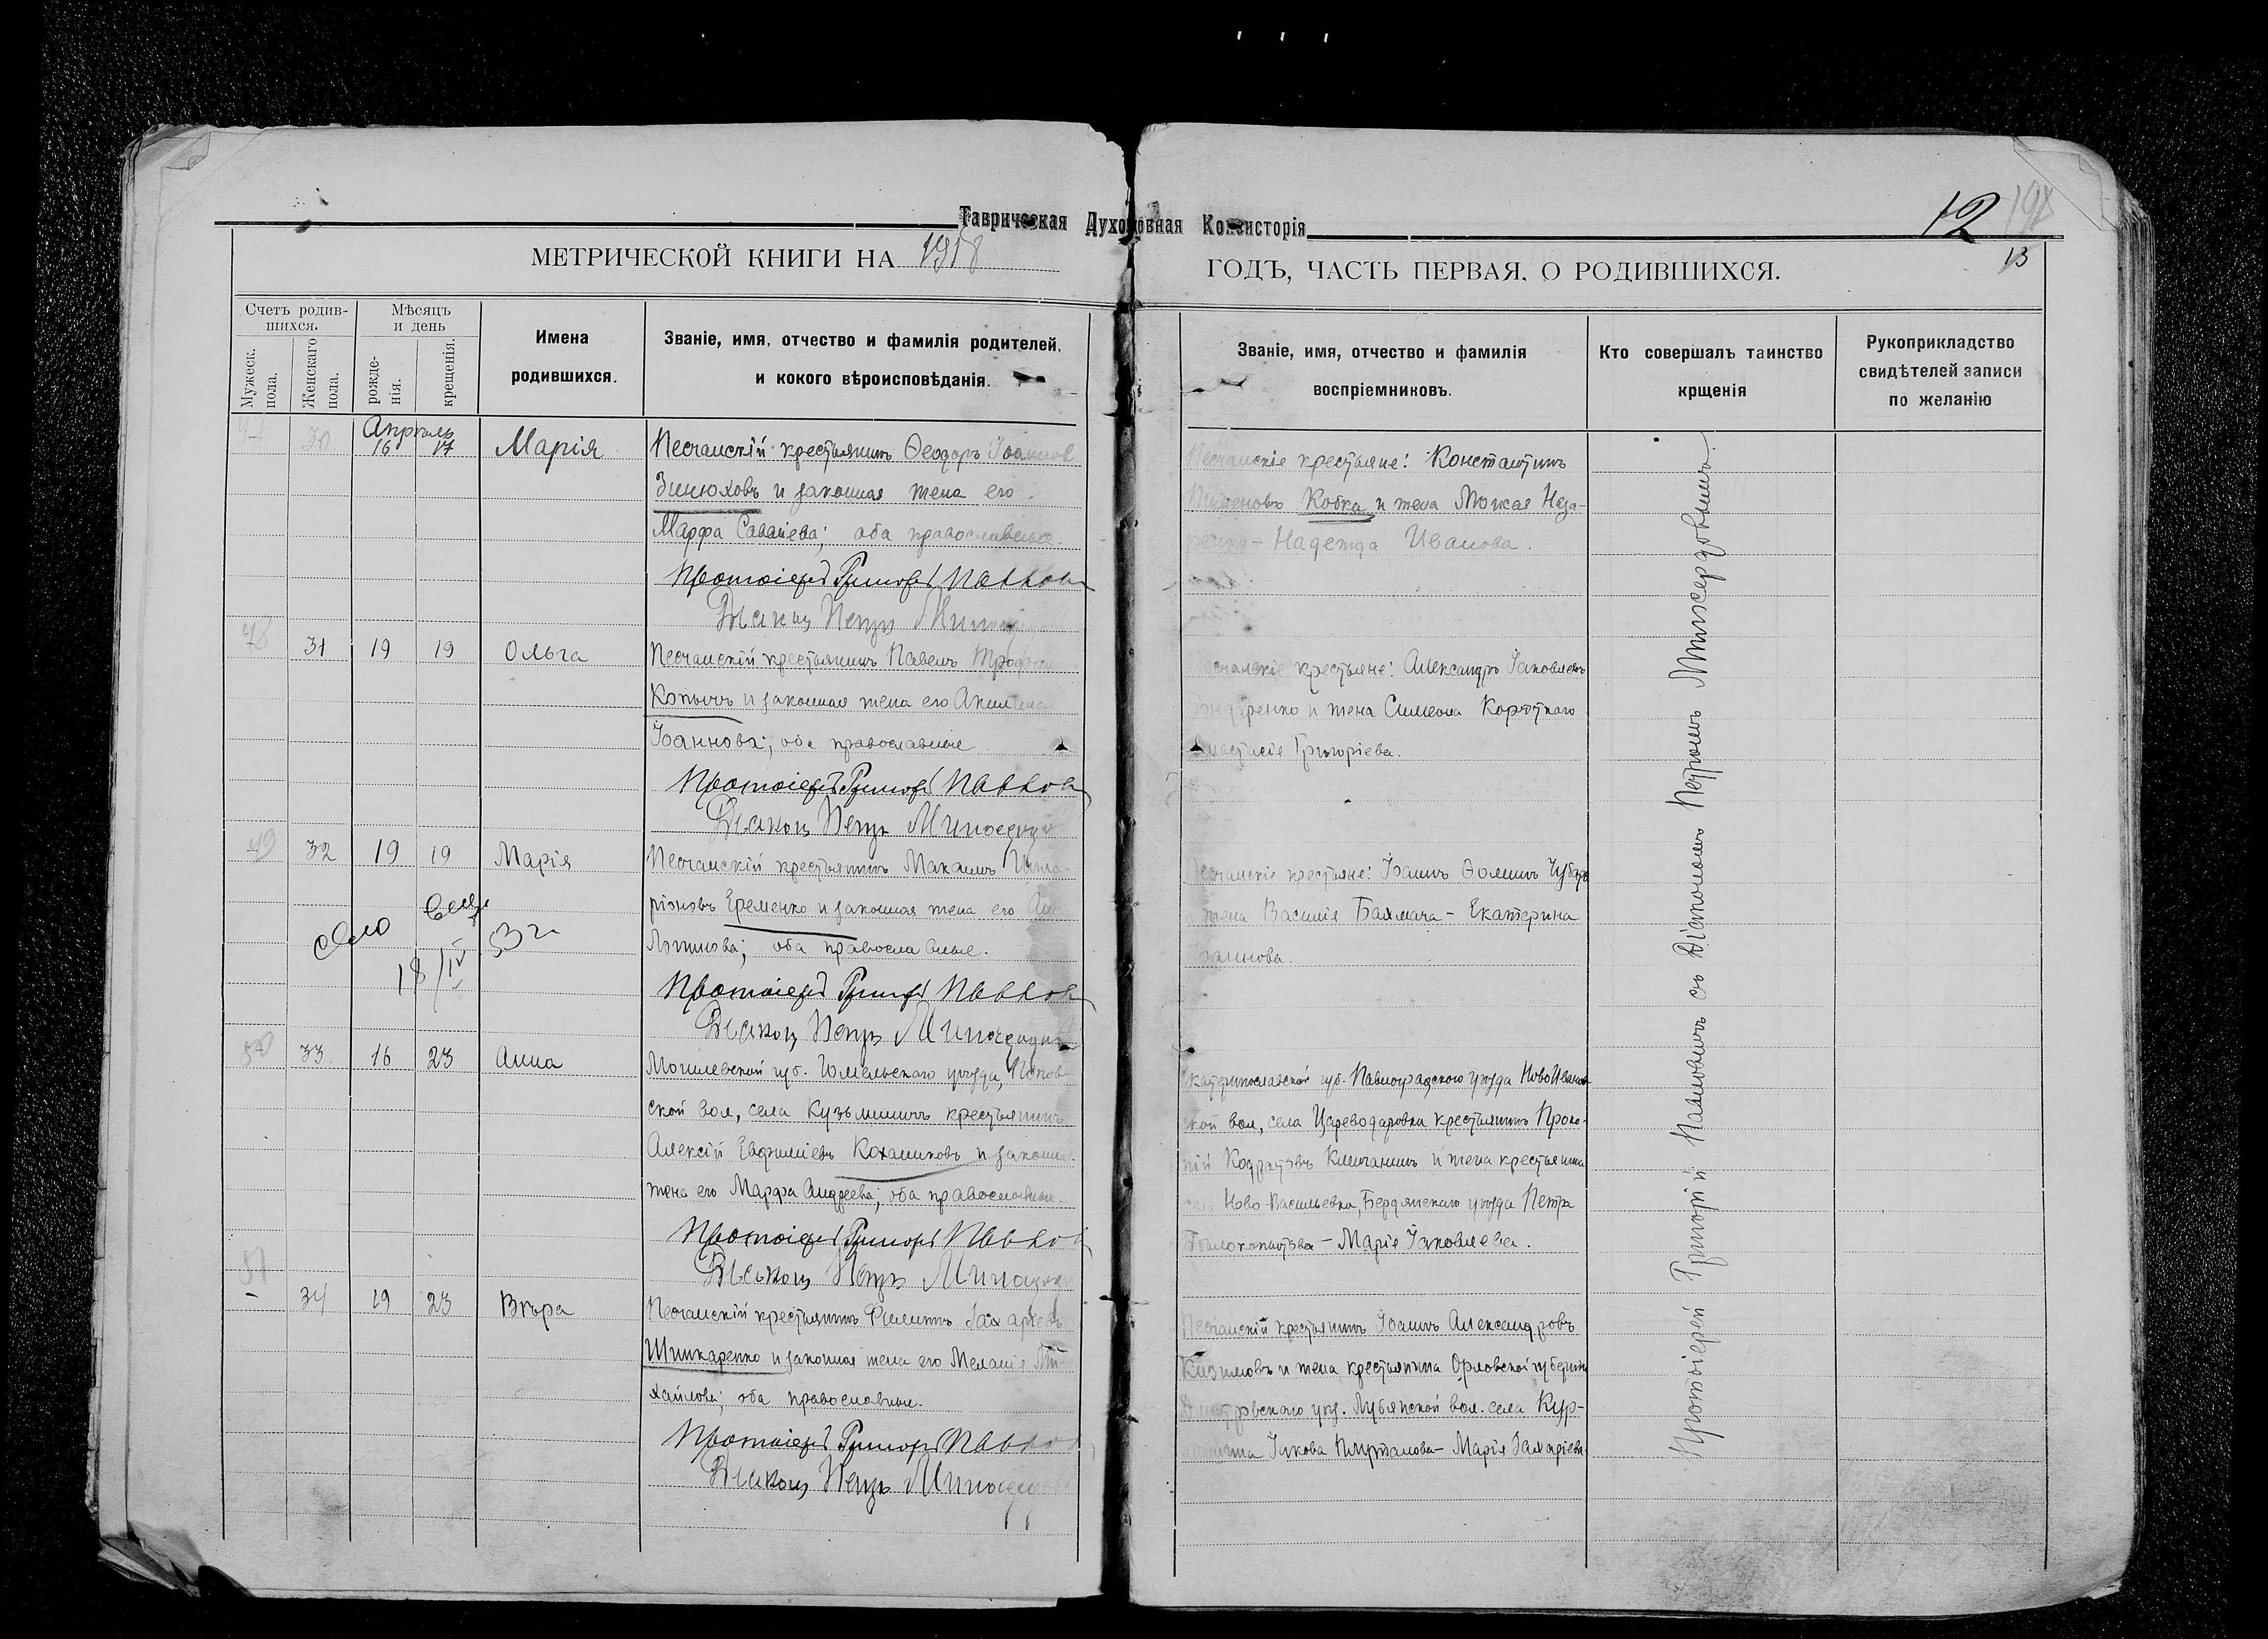 Таврическая Духовная Консисторія
12
198
13
МЕТРИЧЕСКОЙ КНИГИ НА 1918
ГОДЪ, ЧАСТЬ ПЕРВАЯ. О РОДИВШИХСЯ.
Счетъ родив-
шихся.
Мужеск.
пола.
Женскаго
пола.
Мѣсяцъ
и день
рожде-
нія.
крещенія.
Имена
родившихся.
Званіе, имя, отчество и фамилія родителей,
и кокого вѣроисповѣданія.
Званіе, имя, отчество и фамилія
воспріемниковъ.
Кто совершалъ таинство
крщенія
Рукоприкладство
свидѣтелей записи
по желанію
Апрѣль
47 30 16 17 Марія
Песчанскій крестьянинъ Ѳеодоръ Іоаннов
Зинюховъ и законная жена его
Марфа Саваиева; оба православные.
Протоіерей Григорій Павлов
Діаконъ Петръ
Песчанскіе крестьяне: Константинъ
Кобка и жена Моисея Наза-
ренко - Надежда Иванова.
48 31 19 19 Ольга
Песчанскій крестьянинъ Павелъ
Копычъ и законная жена его Акилина
Іоаннова; оба православные
Протоіерей Григорій Павлов
Діаконъ Петръ Милосердов
крестьяне: Александръ Іаковлевъ
Бондаренко и жена Симеона Короткаго
Анастасія Григоріева.
49 32 19 19 Марія
Песчанскій крестьянинъ Максимъ Илла-
ріоновъ Еременко и законная жена его
Логинова; оба православные.
Протоіерей Григорій Павлов
Діаконъ Петръ Милосердов
Песчанскіе крестьяне: Іоаннъ Ѳоминъ Чубарь
и жена Василія Баллача - Екатерина
18/IV 53 г.
50 33 16 23 Анна
Могилевской губ. Гомельскаго уѣзда,
ской вол, села Кузьминичъ крестьянинъ
Алексій Евфиміевъ Коханиковъ и законная
жена его Марфа Андреева; оба православные.
Протоіерей Григорій Павлов
Діаконъ Петръ
Екатеринославской губ. Павлоградскаго уѣзда НовоИванов-
ской вол, села Цареводаровка крестьянинъ Проко-
пій Кодратовъ Кличанинъ и жена крестьянина
села Ново-Васильевка, Бердянскаго уѣзда Петра
Бѣлокопытова - Марія Іаковлева.
51 - 34 19 23 Вѣра
Песчанскій крестьянинъ Филиппъ Захаріевъ
Шинкаренко и законная жена его Меланія Ми-
хайлова; оба православные.
Протоіерей Григорій Павлов
Діаконъ Петръ Милосердов
Песчанскій крестьянинъ Іоаннъ Александровъ
и жена крестьянина Орловской губерніи
Дмитровскаго уѣз. Лубянской вол. села Кур-
Іакова - Марія Захаріева.
Протоіерей Григорій Павловичъ съ Діакономъ Петромъ Милосердовымъ.